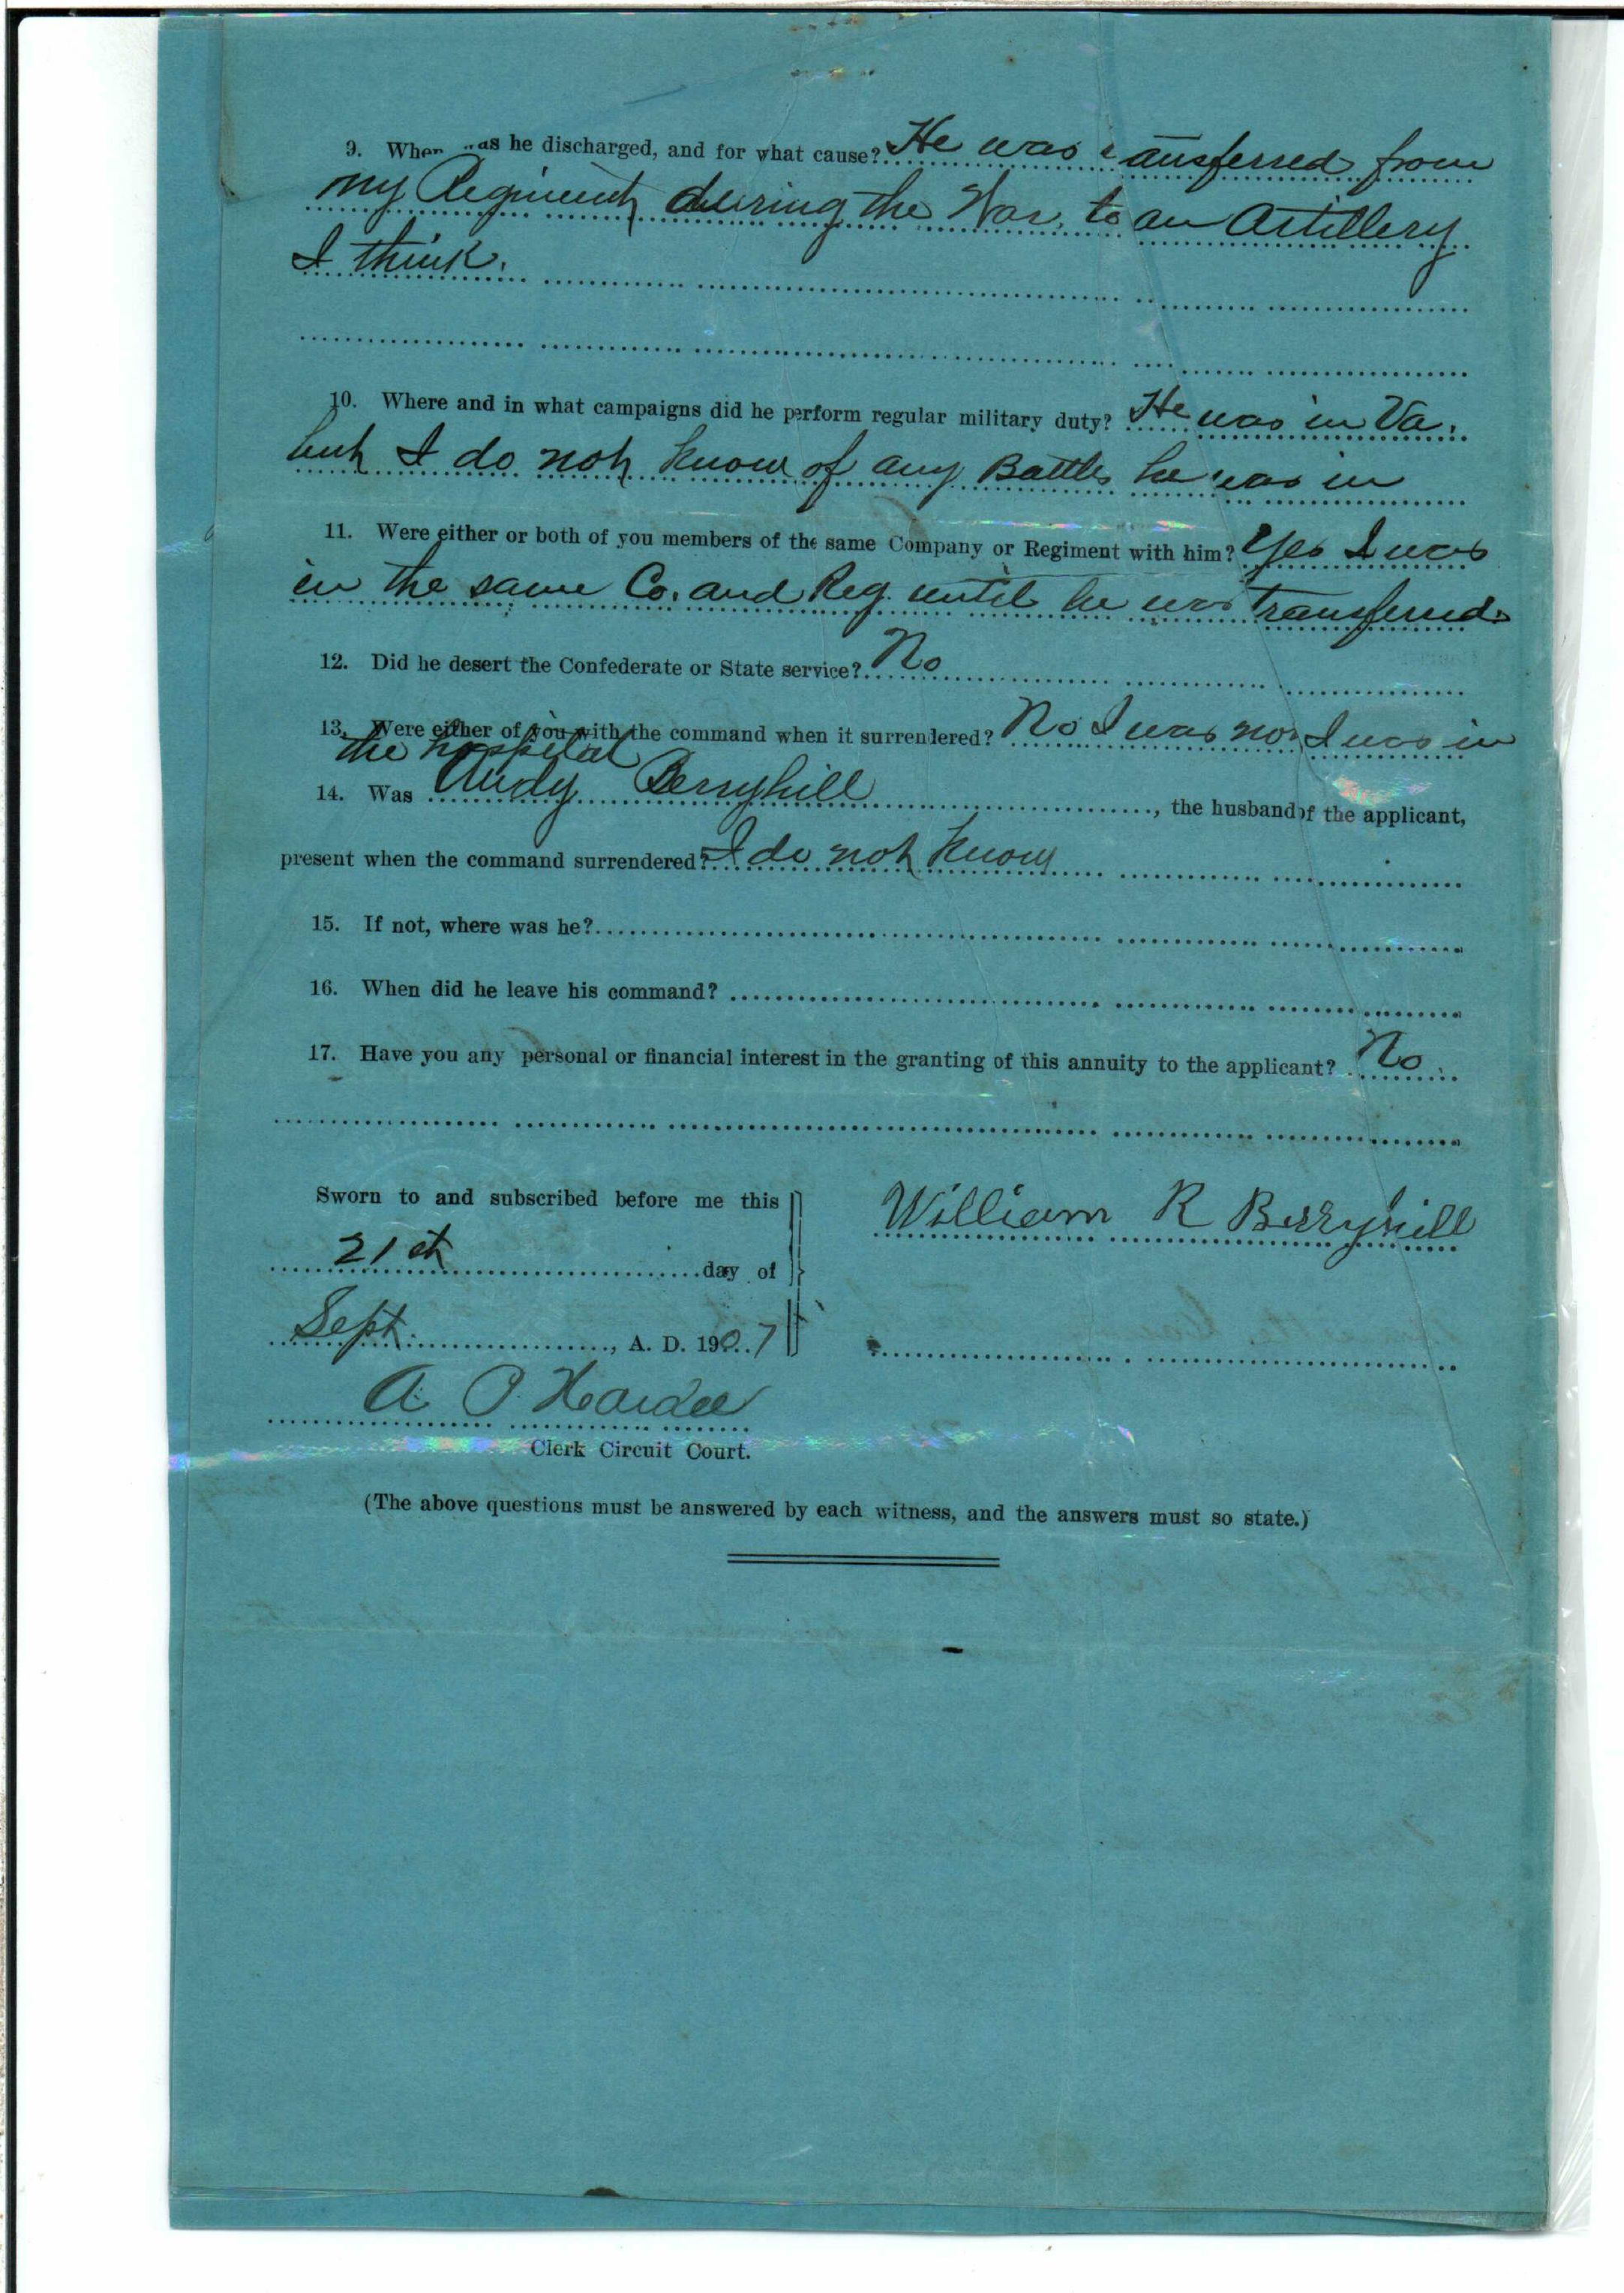 9. When was he discharged, and for what cause? He was transferred from
my Regiment during the War, to an Artillery
I think.
10. Where and in what campaigns did he perform regular military duty? He was in Va.
but I do not know of any Battle he was in
11. Were either or both of you members of the same Company or Regiment with him? Yes I was
in the same Co. and Reg. until he was transferred.
12. Did he desert the Confederate or State service? No
13. Were either of you with the command when it surrendered? No I was not I was in
the hospital
14. Was Andy Berryhill, the husband of the applicant,
present when the command surrendered? I do not know
15. If not, where was he?
16. When did he leave his command?
17. Have you any personal or financial interest in the granting of this annuity to the applicant? No
Sworn to and subscribed before me this
William R Berryhill
21st day of
Sept., A. D. 1907
A. P. Hardee
Clerk Circuit Court.
(The above questions must be answered by each witness, and the answers must so state.)